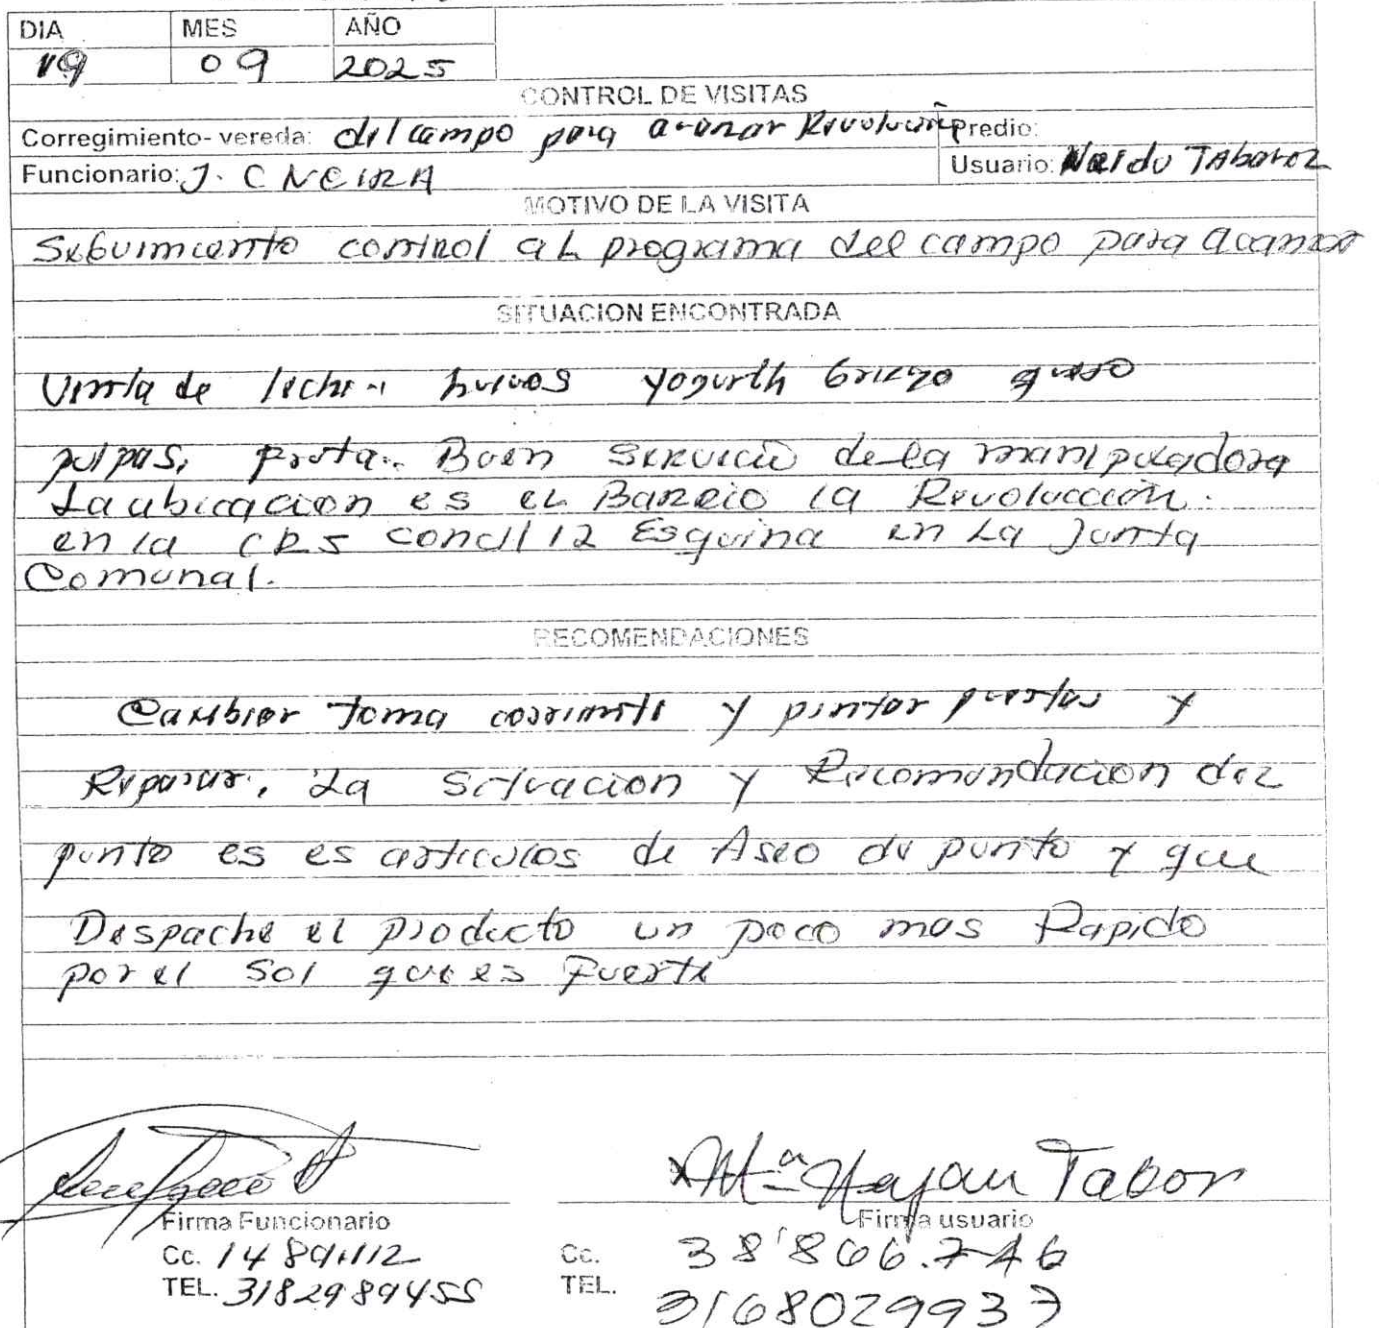 DIA MES AÑO
19 09 2025
CONTROL DE VISITAS
Corregimiento- vereda: del campo para avanzar Revolución Predio:
Funcionario: J. C NEIRA Usuario: Tabarez
MOTIVO DE LA VISITA
Seguimiento control al programa del campo para avanzar
SITUACION ENCONTRADA
Venta de leche huevos yogurth Griego queso
pulpas, fruta. Buen servicio de la manipuladora
La ubicacion es el Barrio la Revolucción.
en la CR5 con cll 12 Esquina en La Junta
Comunal.
RECOMENDACIONES
Cambiar toma corriente y pintar puertas y
Reparar, La Situacion y Recomendacion del
punto es es articulos de Aseo de punto y que
Despache el producto un poco mas Rapido
por el Sol que es fuerte
Mª Tabor
Firma Funcionario Firma usuario
Cc. Cc. 38'866.746
TEL. 3182989455 TEL. 3168029937